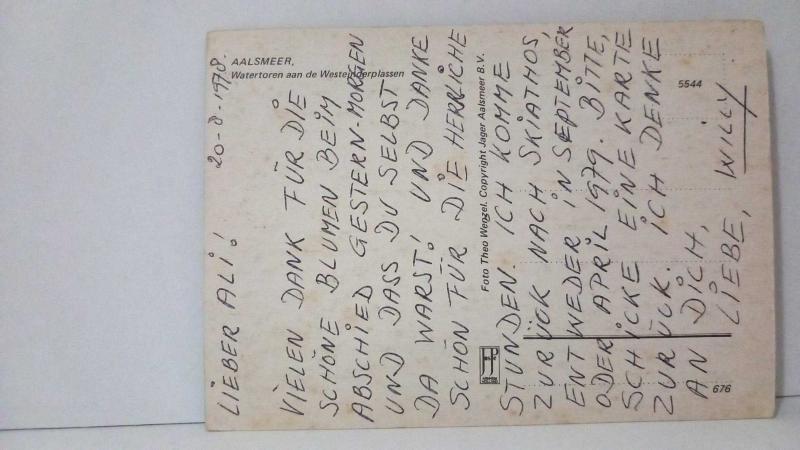 AALSMEER,
Watertoren aan de Westeinderplassen
20-8-1978.
LIEBER ALI!
VIELEN DANK FÜR DIE
SCHÖNE BLUMEN BEIM
ABSCHIED GESTERN-MORGEN
UND DASS DU SELBST
DA WARST! UND DANKE
SCHÖN FÜR DIE HERRLICHE
STUNDEN. ICH KOMME
ZURÜCK NACH SKIATHOS,
ENTWEDER IN SEPTEMBER
ODER APRIL 1979. BITTE,
SCHICKE EINE KARTE
ZURÜCK. ICH DENKE
AN DICH,
LIEBE,
WILLY.
Foto Theo Wenzel. Copyright Jager Aalsmeer B.V.
5544
676